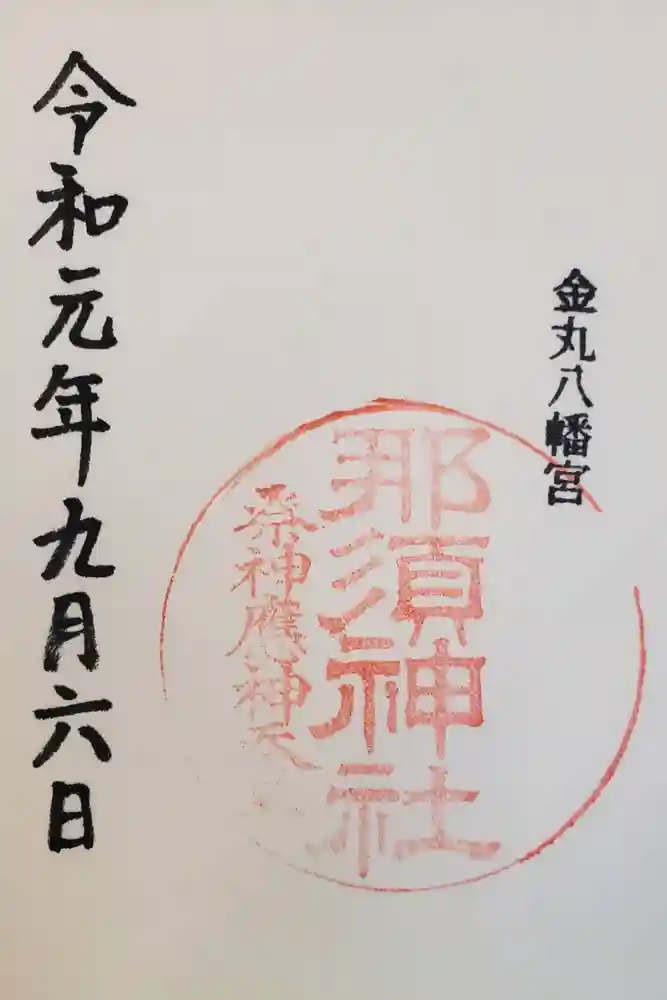 金丸八幡宮
那須神社
祭神應神天
令和元年九月六日